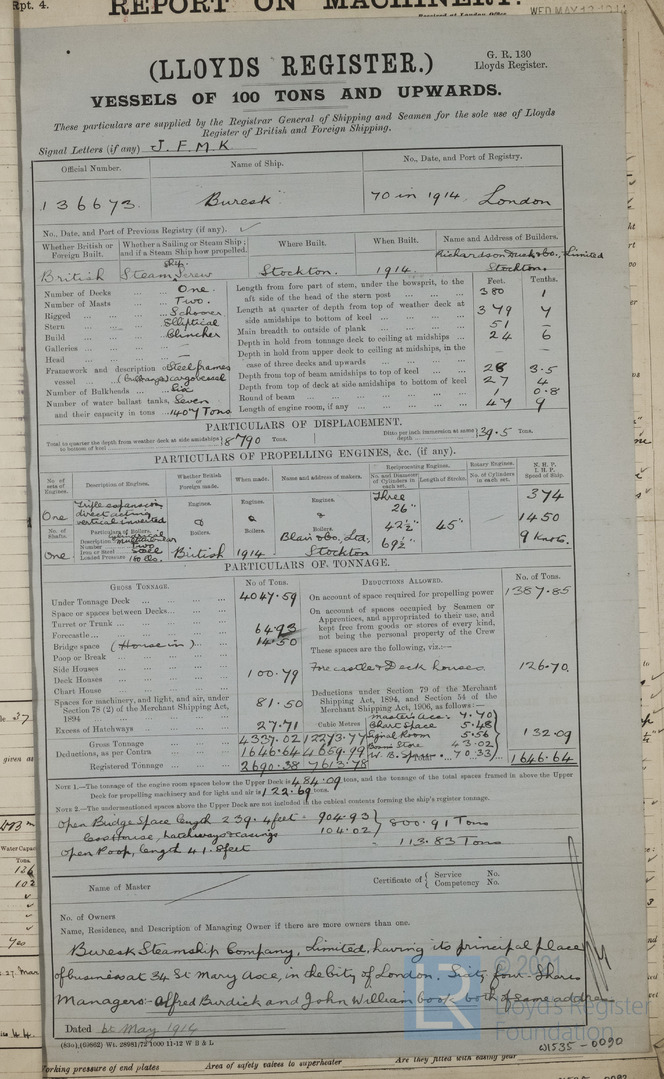 Rpt. 4.
REPORT ON MACHINERY.
WED. MAY 13 1914
G. R. 130
Lloyds Register.
(LLOYDS REGISTER.)
VESSELS OF 100 TONS AND UPWARDS.
These particulars are supplied by the Registrar General of Shipping and Seamen for the sole use of Lloyds
Register of British and Foreign Shipping.
Signal Letters (if any) J. F. M. K
Official Number. Name of Ship. No., Date, and Port of Registry.
136673. "Buresk" 70 in 1914, London
No., Date, and Port of Previous Registry (if any).
Whether British or Foreign Built. Whether a Sailing or Steam Ship; and if a Steam Ship how propelled. Where Built. When Built. Name and Address of Builders.
British Steam Ship, Screw Stockton. 1914. Richardson Duck & Co., Limited Stockton.
Number of Decks ... One.
Number of Masts ... Two.
Rigged ... Schooner.
Stern ... Elliptical
Build ... Clincher
Galleries ... —
Head ... —
Framework and description of vessel ... Steel frames cargo vessel
Number of Bulkheads ... Six
Number of water ballast tanks, Seven
and their capacity in tons ... 1407 Tons
Feet. Tenths.
Length from fore part of stem, under the bowsprit, to the aft side of the head of the stern post ... 380 1
Length at quarter of depth from top of weather deck at side amidships to bottom of keel ... 379 7
Main breadth to outside of plank ... 51 —
Depth in hold from tonnage deck to ceiling at midships ... 24 6
Depth in hold from upper deck to ceiling at midships, in the case of three decks and upwards ...
Depth from top of beam amidships to top of keel ... 28 3.5
Depth from top of deck at side amidships to bottom of keel 27 4
Round of beam ... 1 0.8
Length of engine room, if any ... 47 9
PARTICULARS OF DISPLACEMENT.
Total to quarter the depth from weather deck at side amidships to bottom of keel 8790 Tons. Ditto per inch immersion at same depth 39.5 Tons.
PARTICULARS OF PROPELLING ENGINES, &c. (if any).
No. of sets of Engines. Description of Engines. Whether British or Foreign made. When made. Name and address of makers. Reciprocating Engines. Rotary Engines. N.H.P. I.H.P. Speed of Ship.
No. and Diameter of Cylinders in each set. Length of Stroke. No. of Cylinders in each set.
One Triple expansion direct acting vertical inverted Engines. Engines. Engines. Three 26" 42½" 69½" 45" 374 1450 9 Knots.
No. of Shafts. Particulars of Boilers.
Description
Number two
Iron or Steel Steel
Loaded Pressure 180 lbs.
Boilers. Boilers. Boilers.
One British 1914 Blair & Co., Ltd., Stockton
PARTICULARS OF TONNAGE.
GROSS TONNAGE. No of Tons. DEDUCTIONS ALLOWED. No. of Tons.
Under Tonnage Deck ... 4047.59
Space or spaces between Decks ...
Turret or Trunk ...
Forecastle ... 64.93
Bridge space (House in) ... 14.50
Poop or Break ...
Side Houses ...
Deck Houses ... 100.79
Chart House ...
Spaces for machinery, and light, and air, under Section 78 (2) of the Merchant Shipping Act, 1894 81.50
Excess of Hatchways ... 27.71
Gross Tonnage 4337.02 12273.77
Deductions, as per Contra 1646.64 4659.99
Registered Tonnage 2690.38 7613.78
Cubic Metres
On account of space required for propelling power 1387.85
On account of spaces occupied by Seamen or Apprentices, and appropriated to their use, and kept free from goods or stores of every kind, not being the personal property of the Crew
These spaces are the following, viz.:—
Forecastle & Deck houses. 126.70.
Deductions under Section 79 of the Merchant Shipping Act, 1894, and Section 54 of the Merchant Shipping Act, 1906, as follows:—
Master's acc. 7.70
Chart Space 5.48
Signal Room 5.56
Bosn's Store 43.02
W. B. Space .. 70.33
132.09
1646.64
NOTE 1.—The tonnage of the engine room spaces below the Upper Deck is 484.09 tons, and the tonnage of the total spaces framed in above the Upper Deck for propelling machinery and for light and air is 122.69 tons.
NOTE 2.—The undermentioned spaces above the Upper Deck are not included in the cubical contents forming the ship's register tonnage.
Open Bridge Space length 239.4 feet - 904.93
Less House, hatchways & casings 104.02
800.91 Tons
Open Poop, length 41.8 feet - 113.83 Tons
Name of Master Certificate of Service No. Competency No.
No. of Owners
Name, Residence, and Description of Managing Owner if there are more owners than one.
Buresk Steamship Company, Limited, having its principal place
of business at 34 St Mary Axe, in the City of London. Sixty four Shares
Managers:- Alfred Burdick and John William Cook both of same address
Dated 6th May 1914
(83o),(G9862) Wt. 28981/72 1000 11-12 W B & L
W1535-0090
© 2021
LR
Lloyd's Register
Foundation
Working pressure of end plates Area of safety valves to superheater Are they fitted with easing gear